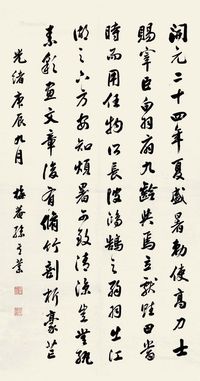 開元二十四年夏盛暑勅使高力士
賜宰臣白羽扇九齡與焉立獻賦曰當
時而用任物所長彼鴻鵠之弱羽出江
湖之下方安知煩暑可致清涼豈無紈
素彩畫文章復有脩竹剖析豪芒
光緒庚辰九月